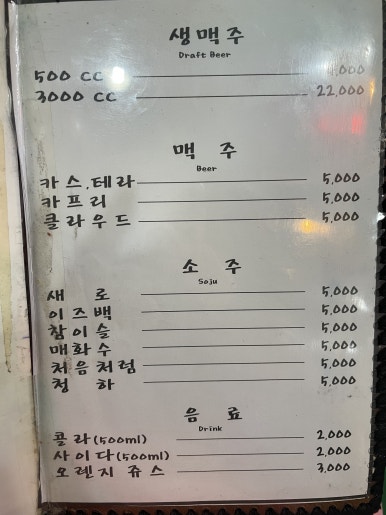 생맥주
Draft Beer
500 CC 4,000
3000 CC 22,000
맥 주
Beer
카스.테라 5,000
카프리 5,000
클라우드 5,000
소 주
Soju
새 로 5,000
이즈백 5,000
참이슬 5,000
매화수 5,000
처음처럼 5,000
청 하 5,000
음 료
Drink
콜라(500ml) 2,000
사이다(500ml) 2,000
오렌지 쥬스 3,000